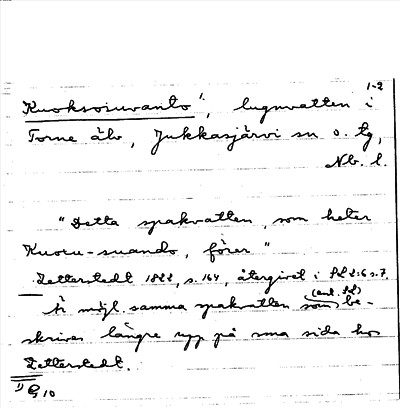 1-2
Kuoksosuvanto¹⁾, lugnvatten i
Torne älv, Jukkasjärvi sn o. tg,
Nb. l.
"Detta spakvatten, som heter
Kuocu-suando, förer"
Zetterstedt 1822, s. 164, återgivet i s. 7.
Är möjl. samma spakvatten som (enl. ) be-
skrives längre upp på sma sida hos
Zetterstedt.
1) G 10